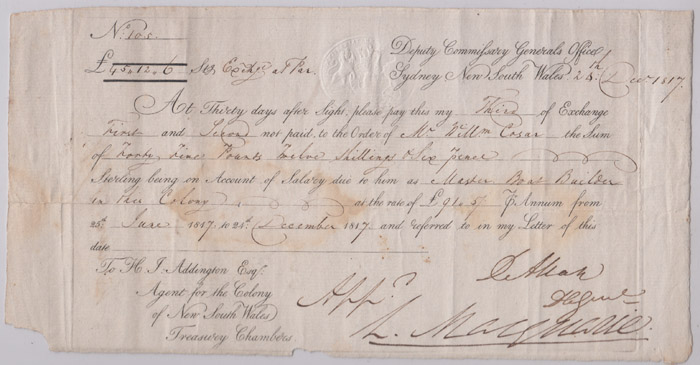 No. 105
£45.12.6 Stg Exchge at Par.
Deputy Commissary Generals Office
Sydney New South Wales 24th Decr 1817.
At Thirty days after Sight, please pay this my Third of Exchange
First and Second not paid, to the Order of Mr Willm Cosar the Sum
of Forty Five Pounds Twelve Shillings & Six Pence
Sterling being on Account of Salary due to him as Master Boat Builder
in this Colony at the rate of £91.5/ P. Annum from
25th June 1817 to 24th December 1817. and referred to in my Letter of this
date
To H. J. Addington Esqr.
Agent for the Colony
of New South Wales
Treasury Chambers.
Appd.
D. Allan
L. Macquarie.